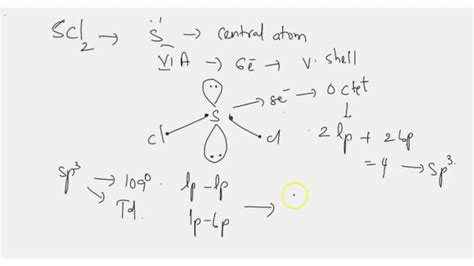 SCl2 → S̈ → central atom
VI A → 6e⁻ → V. shell
S → 8e⁻ → Octet
Cl Cl 2 lp + 2 bp
= 4 → Sp³
Sp³ → 109° lp – lp
Td. lp – bp →